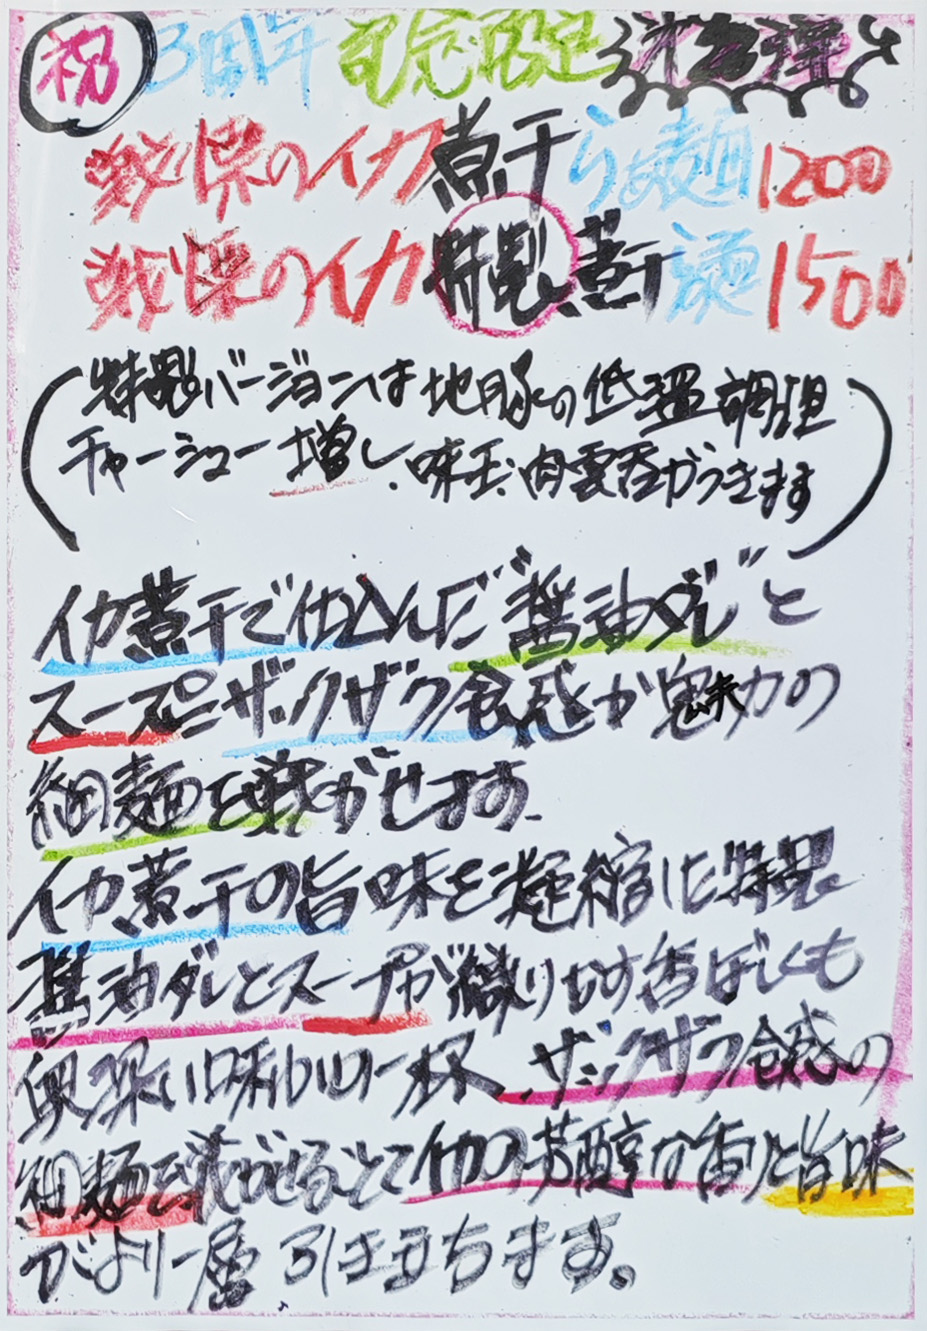 祝 3周年 記念限定 第2弾
戦慄のイカ煮干らぁ麺 1200
戦慄のイカ特製煮干麺 1500
(特製バージョンは地豚の低温調理
チャーシュー増し、味玉、肉雲呑がつきます)
イカ煮干で仕込んだ"醤油ダレ"と
スープにザックザク食感が魅力の
細麺を泳がせます。
イカ煮干の旨味を凝縮した特製
醤油ダレとスープが織りなす香ばしくも
奥深い味わいの一杯、ザックザク食感の
細麺を泳がせることでイカの芳醇な香りと旨味
がより一層引き立ちます。